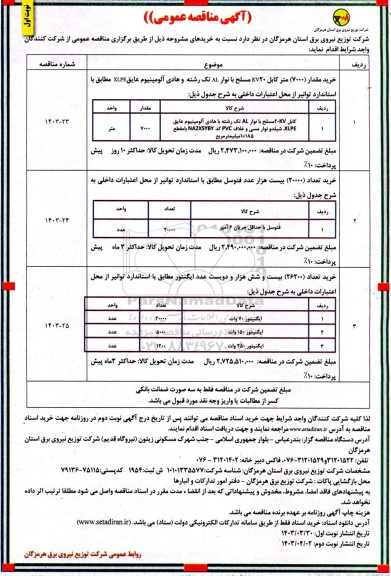 نوبت اول
((آگهی مناقصه عمومی))
شرکت توزیع نیروی برق استان هرمزگان در نظر دارد نسبت به خریدهای مشروحه ذیل از طریق برگزاری مناقصه عمومی از شرکت کنندگان
واجد شرایط اقدام نماید:
ردیف
شرح
شماره مناقصه
۱
خرید مقدار (۷۰۰۰) متر کابل KV۲۰ مسلح با نوار AL تک رشته و هادی آلومینیوم عایق XLPE مطابق با
استاندارد توانیر از محل اعتبارات داخلی به شرح جدول ذیل:
ردیف شرح کالا مقدار واحد
کابل KV-۲۰مسلح با نوار AL تک رشته با هادی آلومینیوم عایق
۱ XLPE، شیلد و نوار مسی و غلاف PVC کد NA2XSYBY بامقطع ۷۰۰۰ متر
۱×۱۸۵میلیمترمربع
مبلغ تضمین شرکت در مناقصه: ۲,۴۷۳,۱۰۰,۰۰۰ ریال مدت زمان تحویل کالا: حداکثر ۱۰ روز پیش
پرداخت: ۱۰٪
۱۴۰۳-۲۳
۲
خرید تعداد (۲۰۰۰۰) بیست هزار عدد فتوسل مطابق با استاندارد توانیر از محل اعتبارات داخلی به
شرح جدول ذیل:
ردیف شرح کالا تعداد واحد
۱ فتوسل با حداقل جریان ۶ آمپر ۲۰۰۰۰ عدد
مبلغ تضمین شرکت در مناقصه: ۲,۴۹۰,۰۰۰,۰۰۰ ریال مدت زمان تحویل کالا: حداکثر ۳ ماه پیش
پرداخت: ۱۰٪
۱۴۰۳-۲۴
۳
خرید تعداد (۲۶۲۰۰) بیست و شش هزار و دویست عدد ایگنتور مطابق با استاندارد توانیر از محل
اعتبارات داخلی به شرح جدول ذیل:
ردیف شرح کالا تعداد واحد
۱ ایگنیتور ۷۰ وات ۲۰۰۰۰ عدد
۲ ایگنیتور ۱۵۰ وات ۵۰۰۰ عدد
۳ ایگنیتور ۲۵۰ وات ۱۲۰۰ عدد
مبلغ تضمین شرکت در مناقصه: ۲,۷۲۵,۵۱۰,۰۰۰ ریال مدت زمان تحویل کالا: حداکثر ۳ماه پیش
پرداخت: ۱۰٪
۱۴۰۳-۲۵
مبلغ تضمین شرکت در مناقصه فقط به سه صورت ضمانت بانکی
کسر از مطالبات یا واریز وجه نقد مورد قبول می باشد.
لذا کلیه شرکت کنندگان واجد شرایط جهت خرید اسناد مناقصه می توانند پس از تاریخ درج آگهی نوبت دوم در روزنامه جهت خرید اسناد
مناقصه به آدرس www.setadiran.ir مراجعه نمایند و جهت دریافت اسناد اقدام نمایند.
آدرس دستگاه مناقصه گزار: بندرعباس – بلوار جمهوری اسلامی – جنب شهرک مسکونی زیتون (نیروگاه قدیم) شرکت توزیع نیروی برق استان
هرمزگان
مشخصات شرکت توزیع نیروی برق استان هرمزگان: شناسه کد:
محل بازگشایی پاکات : شرکت توزیع برق هرمزگان - دفتر امور تدارکات و انبارها
به پیشنهادهای فاقد امضاء، مشروط، مخدوش و پیشنهاداتی که بعد از انقضاء مدت مقرر در اسناد مناقصه واصل می شود مطلقا ترتیب اثر داده
نخواهد شد.
هزینه چاپ آگهی روزنامه بر عهده برنده مناقصه می باشد.
آدرس دانلود اسناد: خرید اسناد فقط از طریق سامانه تدارکات الکترونیکی دولت (ستاد) می باشد. (www.setadiran.ir)
تاریخ انتشار نوبت اول: ۱۴۰۳/۰۳/۳۰
تاریخ انتشار نوبت دوم: ۱۴۰۳/۰۴/۰۲
روابط عمومی شرکت توزیع نیروی برق هرمزگان